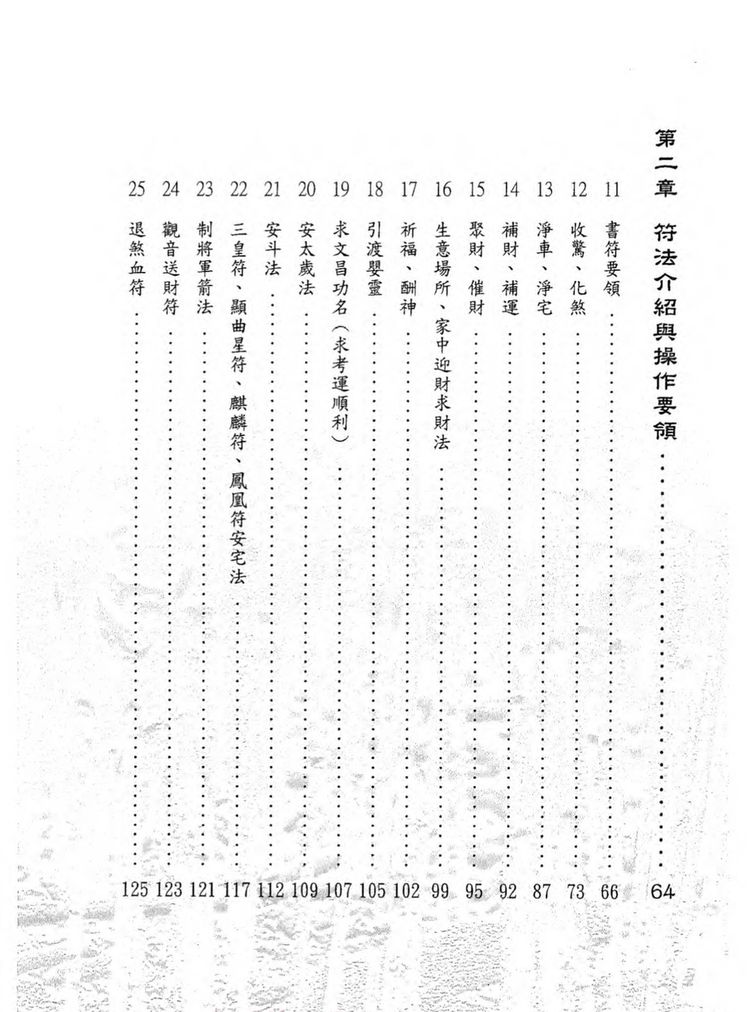 第二章 符法介紹與操作要領 64
11 書符要領 66
12 收驚、化煞 73
13 淨車、淨宅 87
14 補財、補運 92
15 聚財、催財 95
16 生意場所、家中迎財求財法 99
17 祈福、酬神 102
18 引渡嬰靈 105
19 求文昌功名（求考運順利） 107
20 安太歲法 109
21 安斗法 112
22 三皇符、顯曲星符、麒麟符、鳳凰符安宅法 117
23 制將軍箭法 121
24 觀音送財符 123
25 退煞血符 125